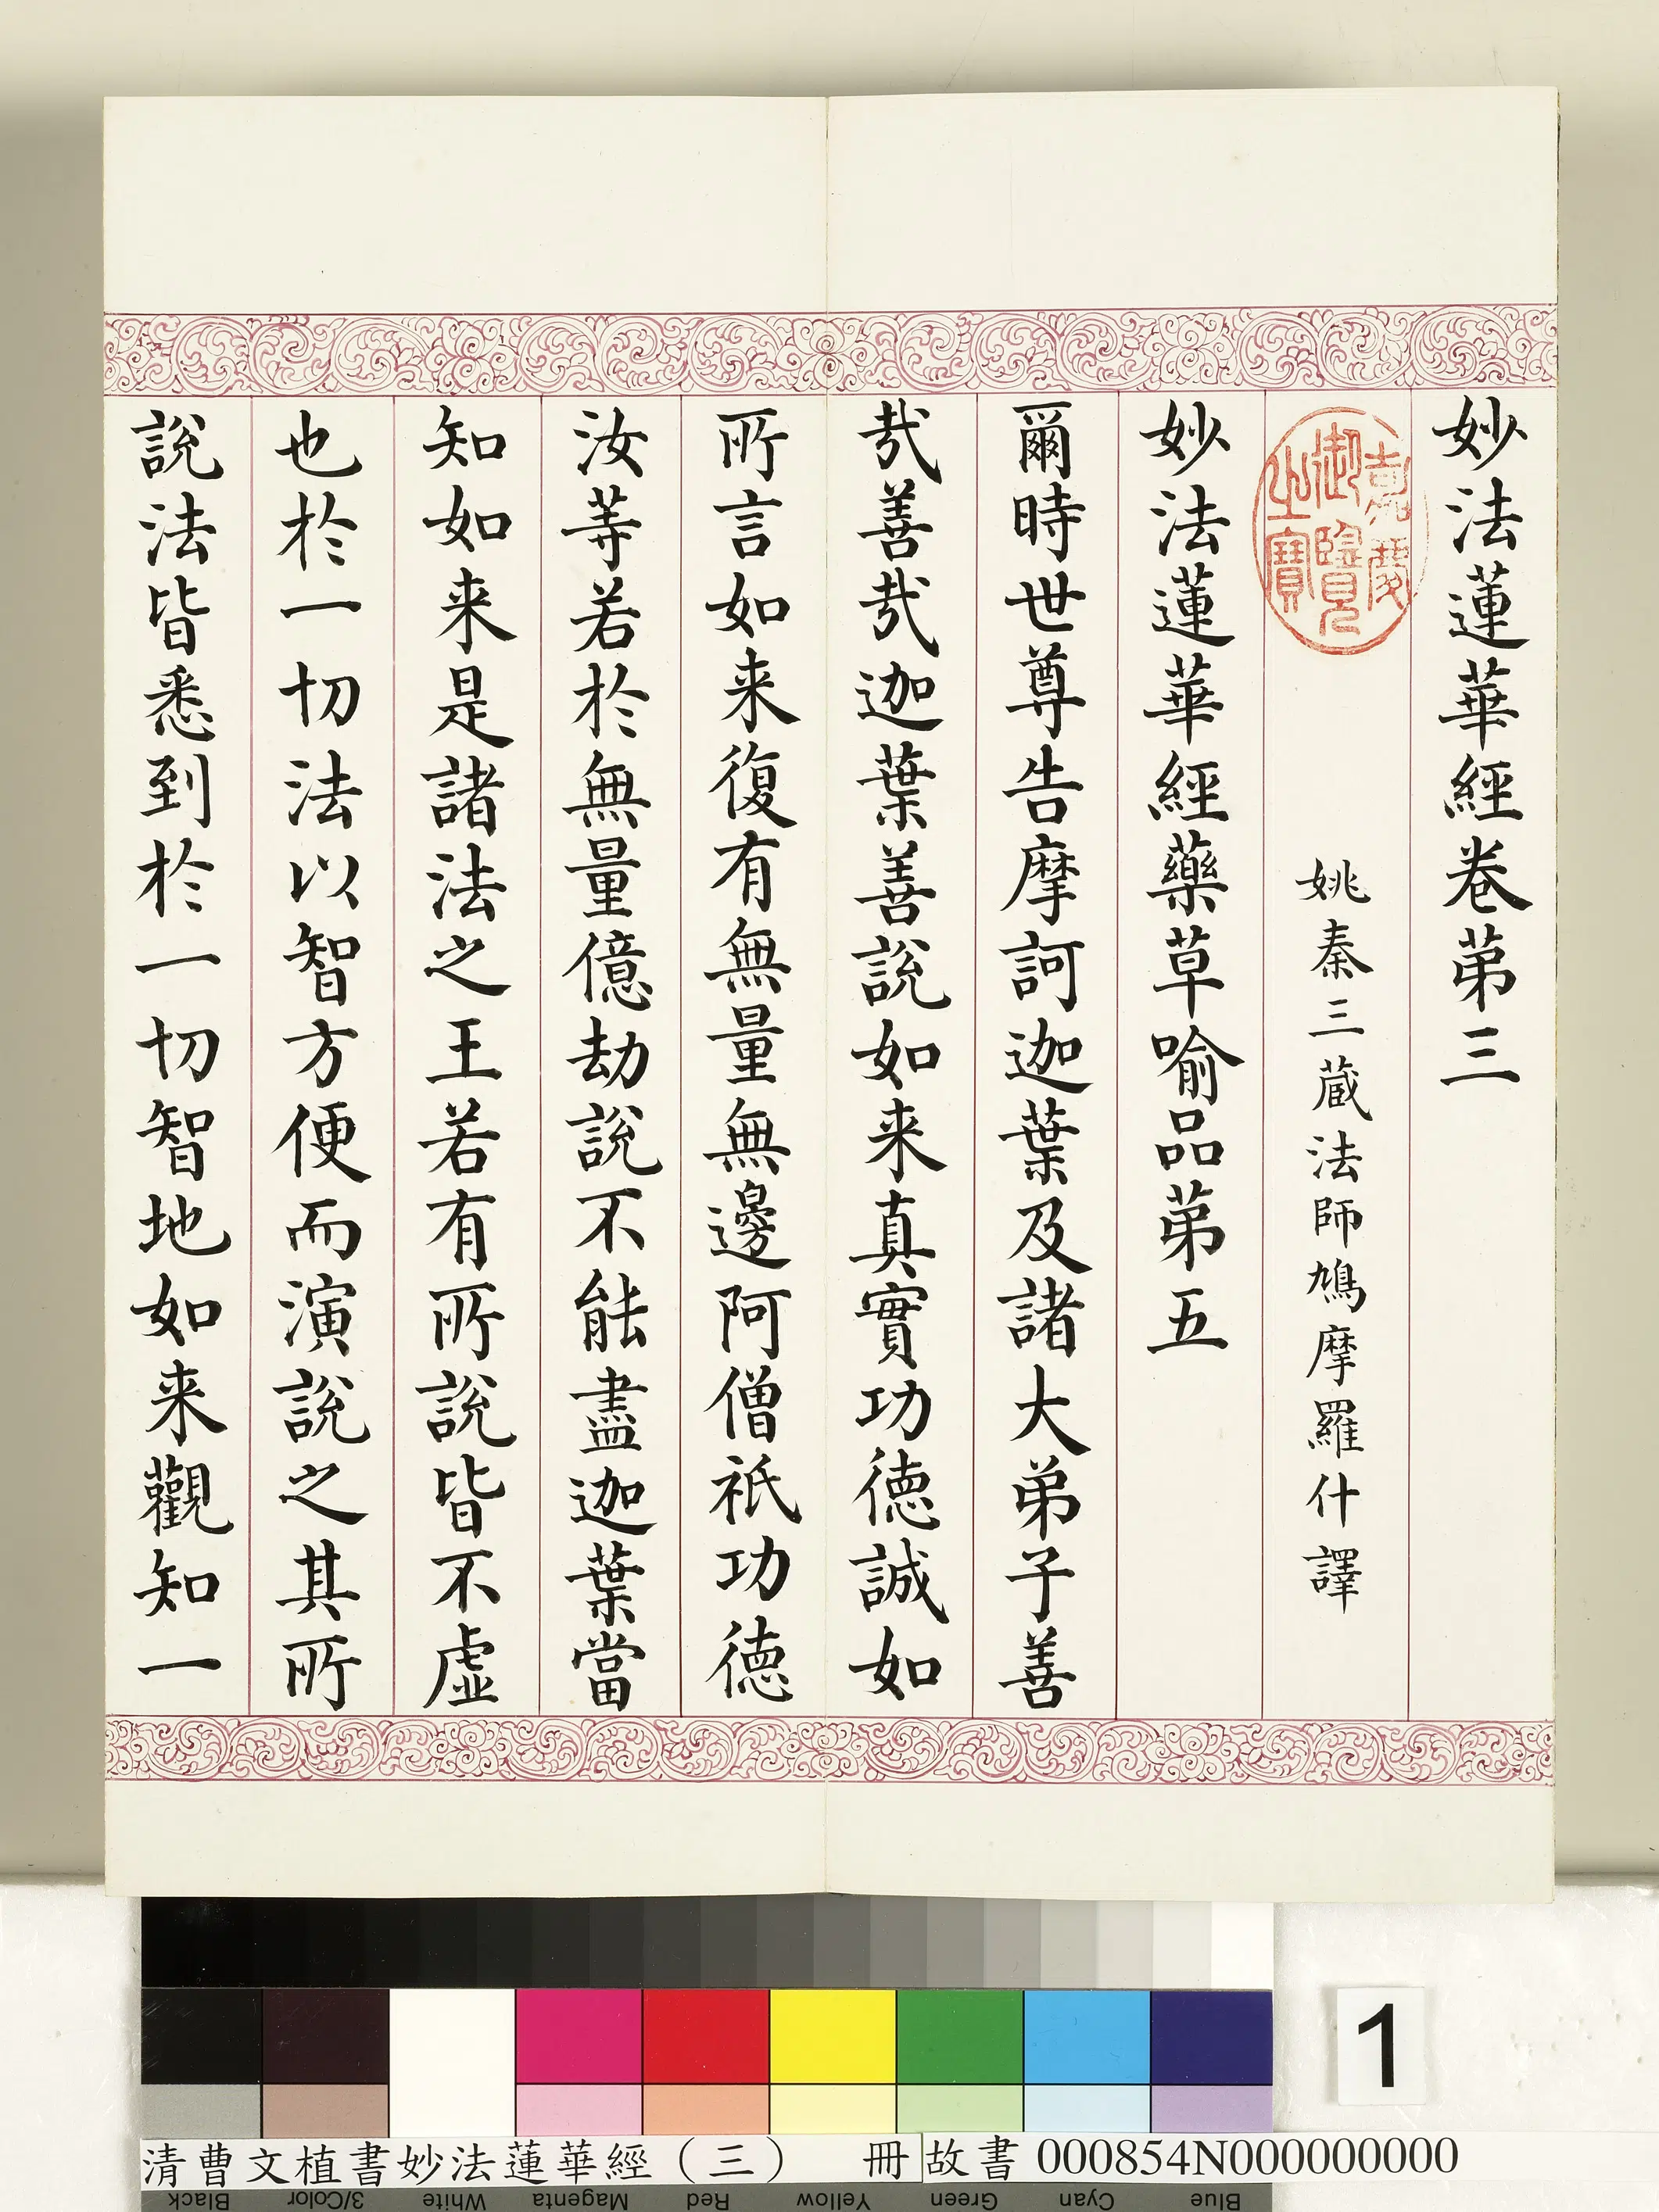 妙法蓮華經卷苐三
嘉慶御覽之寶
姚秦三蔵法師鳩摩羅什譯
妙法蓮華經藥草喻品苐五
爾時世尊告摩訶迦葉及諸大弟子善
㢤善㢤迦葉善說如来真實功徳誠如
所言如来復有無量無邊阿僧祇功徳
汝等若於無量億劫說不能盡迦葉當
知如来是諸法之王若有所說皆不虛
也於一切法以智方便而演說之其所
說法皆悉到於一切智地如来觀知一
1
清曹文植書妙法蓮華經（三） 冊 故書 000854N000000000
Black 3/Color White Magenta Red Yellow Green Cyan Blue